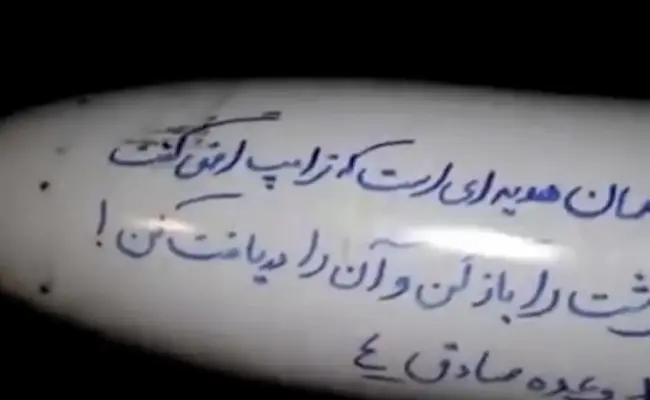 همان هدیه ای است که ترامپ گفت
را باز کن و آن را دریافت کن!
وعده صادق ٤